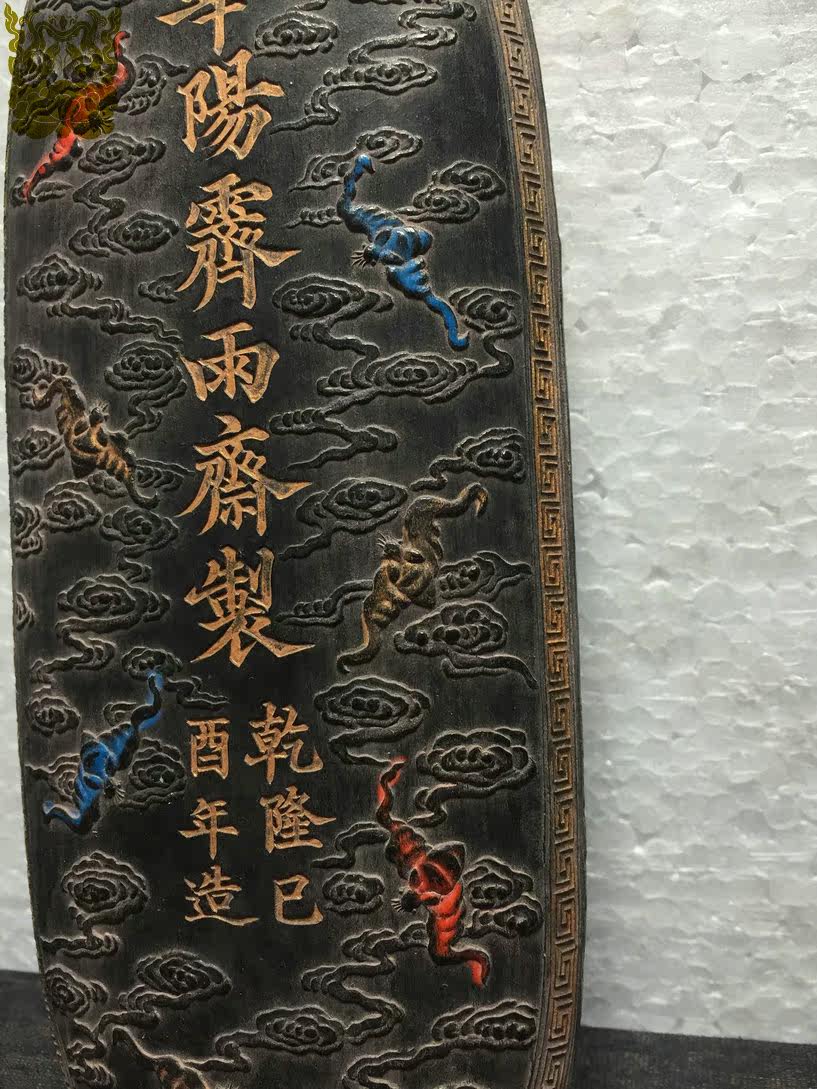 陽霽雨齋製
乾隆已
酉年造